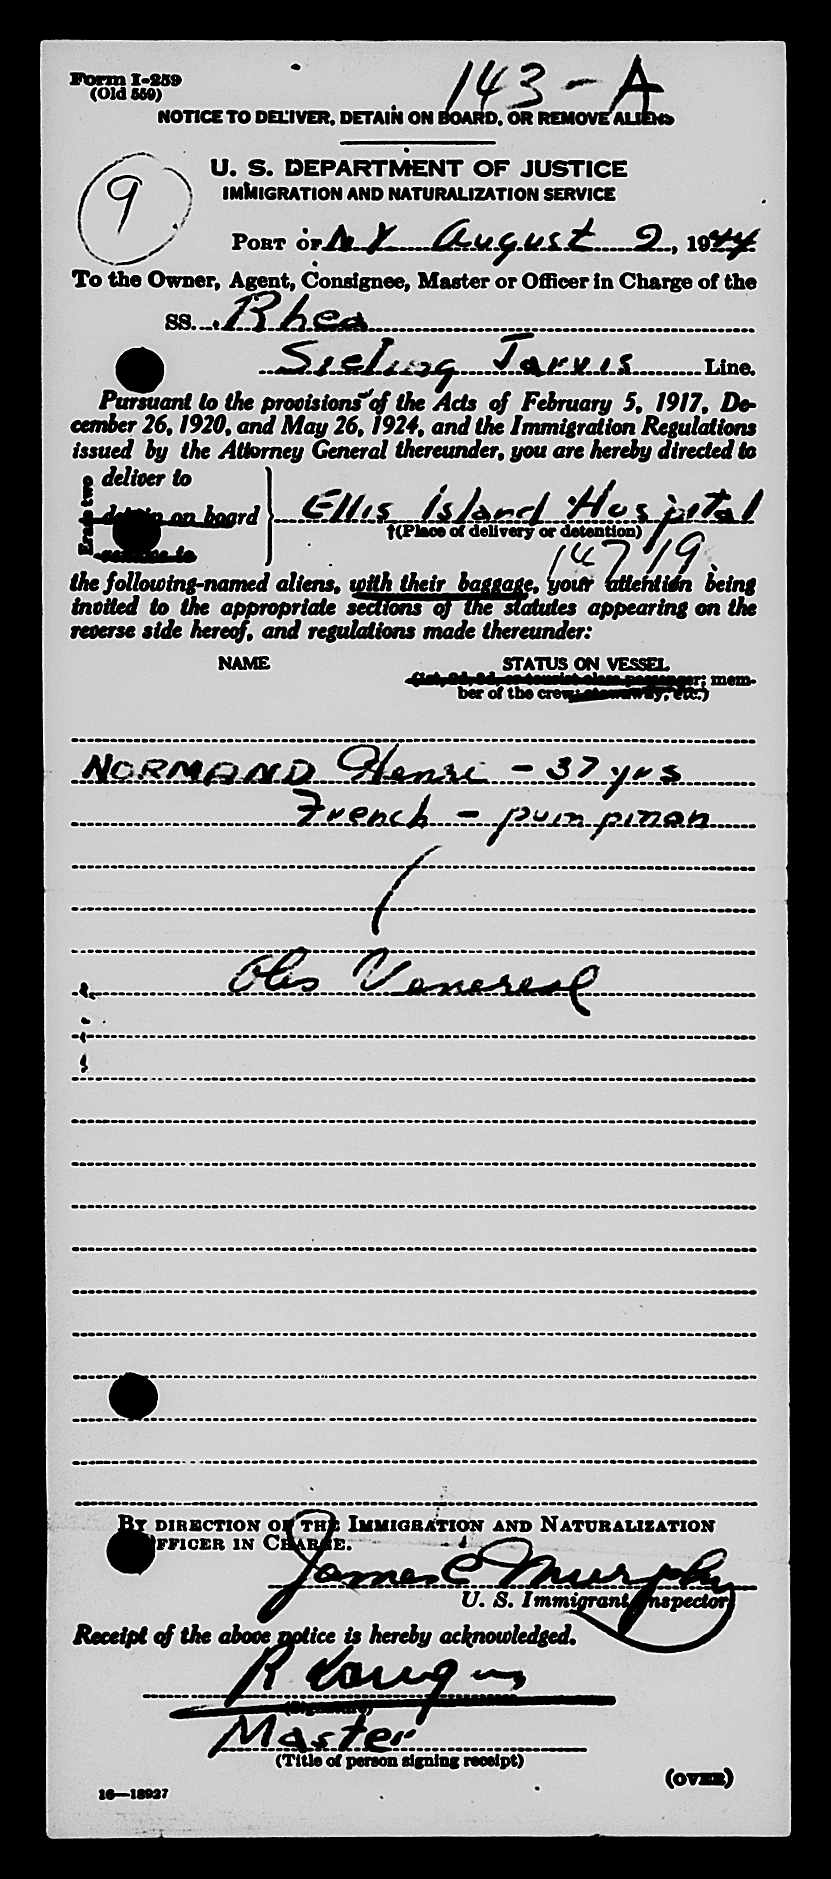 Form I-259
(Old 559)
143-A
NOTICE TO DELIVER, DETAIN ON BOARD, OR REMOVE ALIENS
U. S. DEPARTMENT OF JUSTICE
IMMIGRATION AND NATURALIZATION SERVICE
9
PORT OF N Y August 9, 1944
To the Owner, Agent, Consignee, Master or Officer in Charge of the
SS. Rhea
Sieling Jarvis Line.
Pursuant to the provisions of the Acts of February 5, 1917, De-
cember 26, 1920, and May 26, 1924, and the Immigration Regulations
issued by the Attorney General thereunder, you are hereby directed to
deliver to
Erase two
detain on board
remove to
Ellis Island Hospital
†(Place of delivery or detention)
147/19
the following-named aliens, with their baggage, your attention being
invited to the appropriate sections of the statutes appearing on the
reverse side hereof, and regulations made thereunder:
NAME STATUS ON VESSEL
(1st, 2d, 3d, or tourist class passenger; mem-
ber of the crew; stowaway, etc.)
NORMAND Henri - 37 yrs
French - pumpman
Obs Venereal
BY DIRECTION OF THE IMMIGRATION AND NATURALIZATION
OFFICER IN CHARGE.
James C Murphy
U. S. Immigrant Inspector
Receipt of the above notice is hereby acknowledged.
R
(Signature)
Master
(Title of person signing receipt)
(OVER)
16—18927